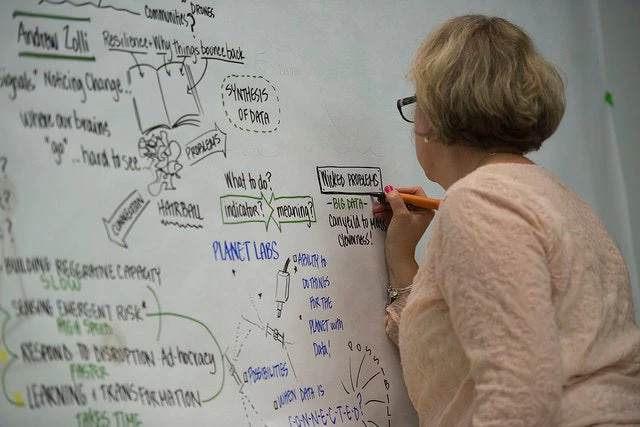 communities? DRONES
Andrew Zolli
Resilience + Why things bounce back
signals" Noticing Change...
Where our brains
"go" ... hard to see
PROBLEMS
SYNTHESIS
OF DATA
CONNECTION
HAIRBALL
What to do?
indicator?
meaning?
WICKED PROBLEMS
- BIG DATA -
cleverness!
PLANET LABS
ABILITY to
DO THINGS
FOR THE
PLANET with
Data!
POSSIBILITIES
WHEN DATA IS
C-O-N-N-E-C-T-E-D?
POSSIBIL
BUILDING REGERATIVE CAPACITY
SLOW
SENSING EMERGENT RISK*
HIGH SPEED
RESPOND TO DISRUPTION Ad-hocracy
FASTER
LEARNING + TRANSFORMATION
TAKES TIME